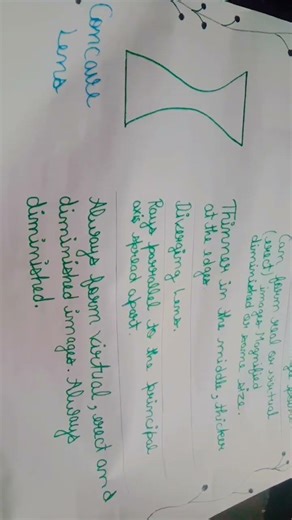 Can form real or virtual
(erect) images. Magnified
diminished or same size.
Thinner in the middle, thicker
at the edges
Diverging Lens.
Rays parrallel to the principal
axis spread apart.
Always form virtual, erect and
diminished images. Always
diminished.
Concave
Lens